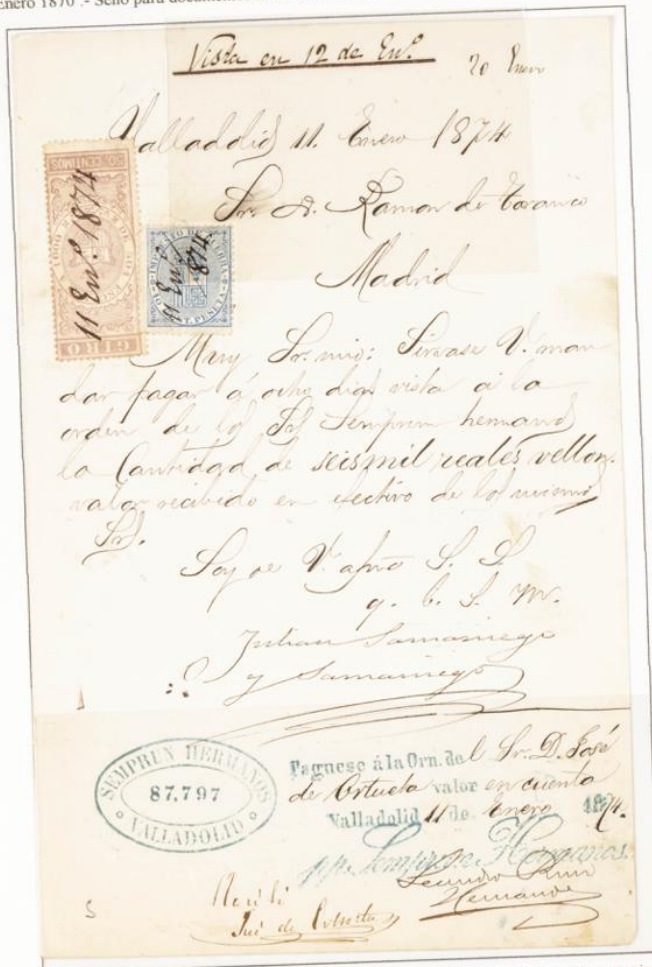 Enero 1870 .- Sello para documentos
Vista en 12 de En.º
20 Enero
Valladolid 11. Enero 1874
Sr. D. Ramon de Taranco
Madrid
50 CENTIMOS
11 En.º 1874
GIRO
IMPUESTO DE GUERRA
11 En.º 1874
10 CENT. PESETA
Muy Sr. mio: Sirvase V. man
dar pagar á ocho dias vista á la
orden de los Srs Semprun hermanos
la Cantidad de seismil reales vellon.
valor recibido en efectivo de los mismos
Srs.
Soy de V. afmo S. S.
q. b. s. m.
Julian Samaniego
y Samaniego
SEMPRUN HERMANOS
87.797
VALLADOLID
Paguese á la Orn. del Sr. D. José
de Ortueta valor en cuenta
Valladolid 11 de Enero 1874.
pp. Semprun Hermanos.
Hernando
Recibí
José de Ortueta
S